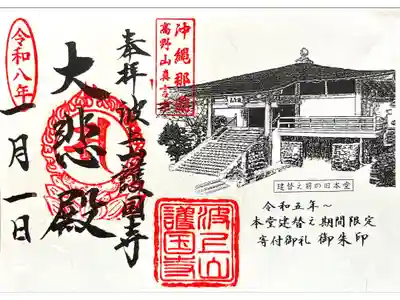 沖縄那覇
高野山真言宗
奉拝
波上護国寺
大悲殿
令和八年
一月一日
建替え前の旧本堂
令和五年～
本堂建替え期間限定
寄付御礼 御朱印
波上山
護国寺